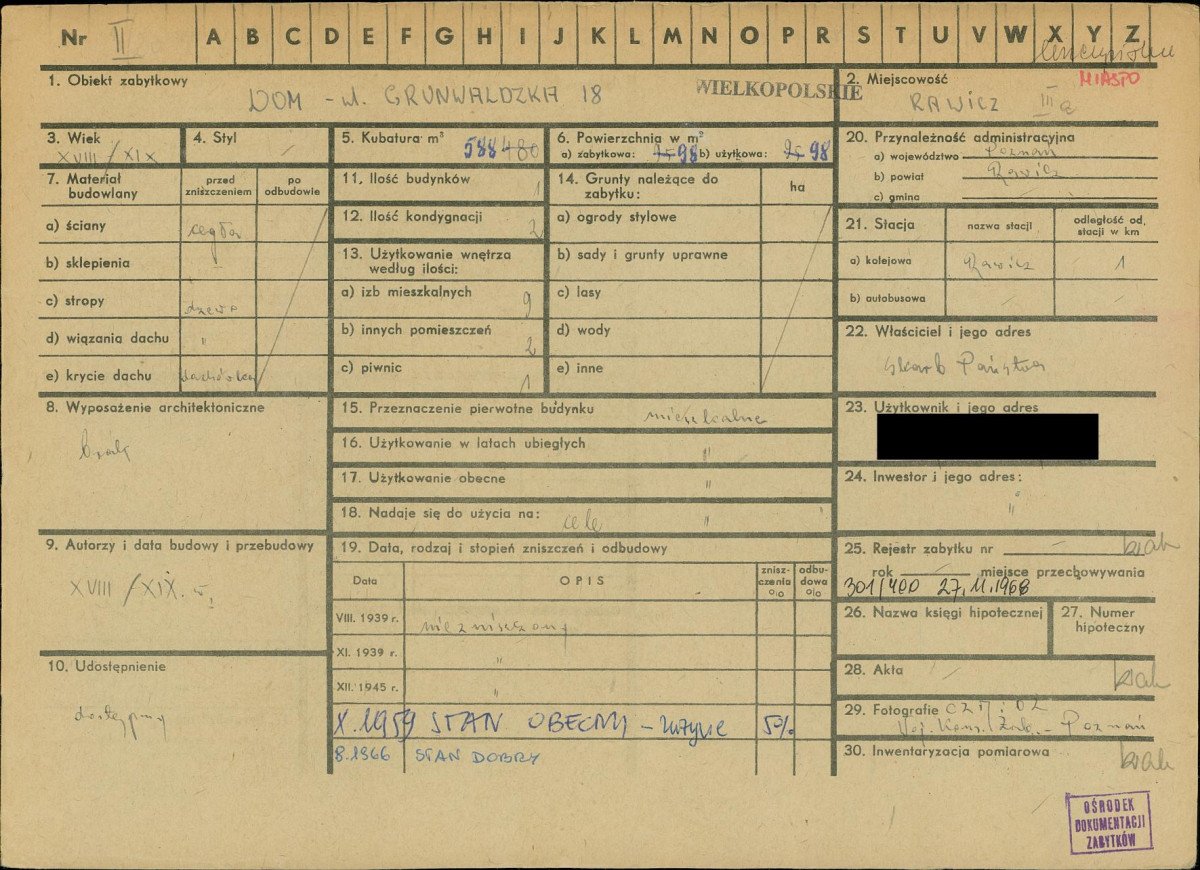 Nr II A B C D E F G H I J K L M N O P R S T U V W X Y Z
1. Obiekt zabytkowy
DOM - ul. GRUNWALDZKA 18
WIELKOPOLSKIE
2. Miejscowość
MIASTO
RAWICZ III a
3. Wiek
XVIII/XIX
4. Styl
5. Kubatura m³
588 480
6. Powierzchnia w m²
a) zabytkowa: 98 b) użytkowa: 98
7. Materiał budowlany
przed zniszczeniem
po odbudowie
a) ściany
cegła
b) sklepienia
c) stropy
drewo
d) wiązania dachu
"
e) krycie dachu
dachówka
8. Wyposażenie architektoniczne
brak
9. Autorzy i data budowy i przebudowy
XVIII/XIX. w.
10. Udostępnienie
dostępny
11. Ilość budynków
1
12. Ilość kondygnacji
2
13. Użytkowanie wnętrza według ilości:
a) izb mieszkalnych
9
b) innych pomieszczeń
2
c) piwnic
1
14. Grunty należące do zabytku:
ha
a) ogrody stylowe
b) sady i grunty uprawne
c) lasy
d) wody
e) inne
15. Przeznaczenie pierwotne budynku
mieszkalne
16. Użytkowanie w latach ubiegłych
"
17. Użytkowanie obecne
"
18. Nadaje się do użycia na:
cele "
19. Data, rodzaj i stopień zniszczeń i odbudowy
Data
OPIS
zniszczenia %
odbudowa %
VIII. 1939 r.
niezniszczony
XI. 1939 r.
"
XII. 1945 r.
"
X.1959 STAN OBECNY - zużycie 5%
8.1966 STAN DOBRY
20. Przynależność administracyjna
a) województwo Poznań
b) powiat Rawicz
c) gmina
21. Stacja
nazwa stacji
odległość od stacji w km
a) kolejowa
Rawicz
1
b) autobusowa
22. Właściciel i jego adres
Skarb Państwa
23. Użytkownik i jego adres
24. Inwestor i jego adres:
"
25. Rejestr zabytku nr
brak
rok miejsce przechowywania
301/400 27.11.1968
26. Nazwa księgi hipotecznej
27. Numer hipoteczny
28. Akta
brak
29. Fotografie
Woj. Kons. Zab. - Poznań
30. Inwentaryzacja pomiarowa
brak
OŚRODEK
DOKUMENTACJI
ZABYTKÓW